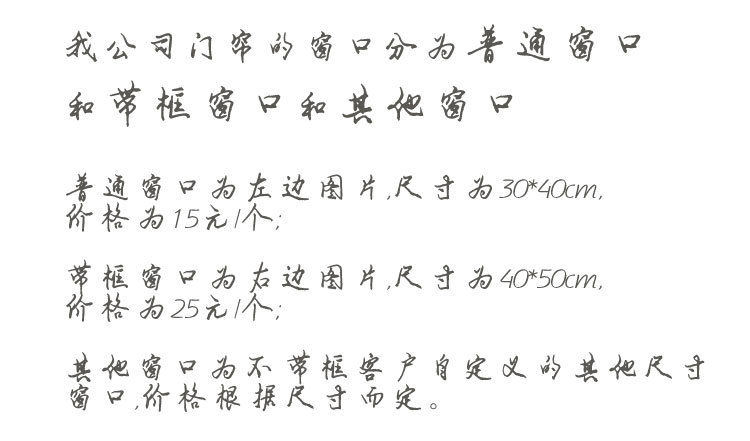 我公司门帘的窗口分为普通窗口
和带框窗口和其他窗口
普通窗口为左边图片,尺寸为30*40cm,
价格为15元/个;
带框窗口为右边图片,尺寸为40*50cm,
价格为25元/个;
其他窗口为不带框客户自定义的其他尺寸
窗口,价格根据尺寸而定。